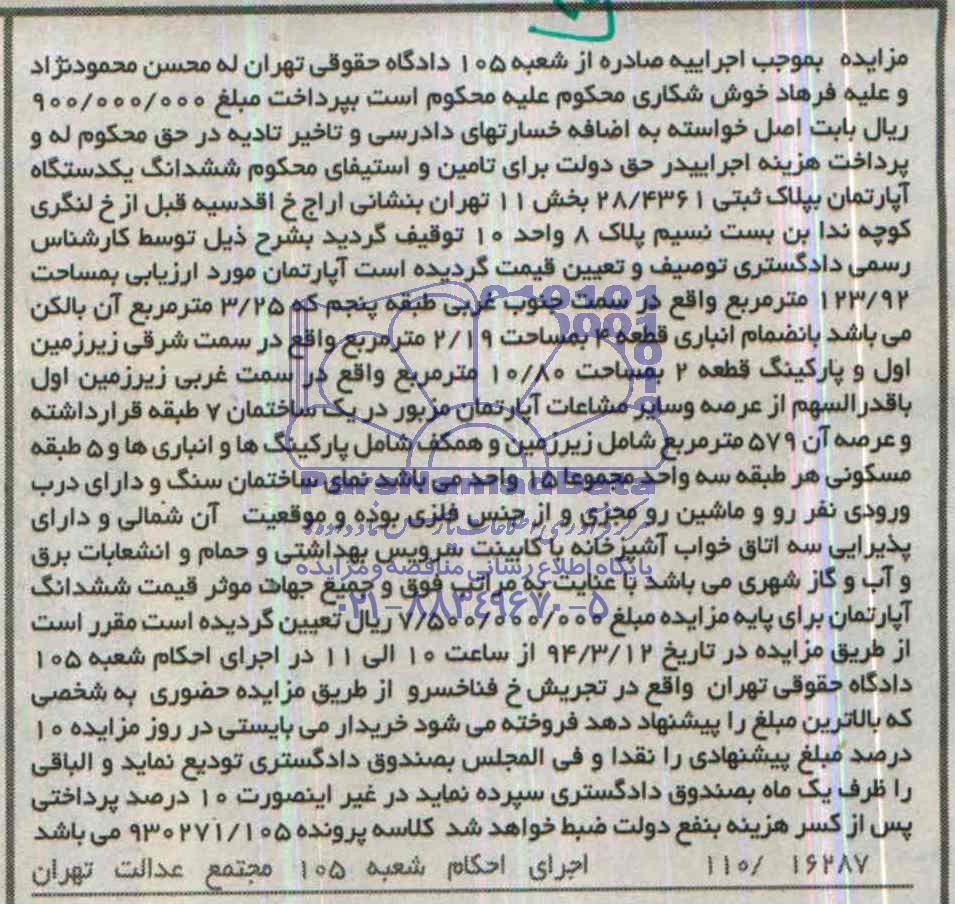 مزایده بموجب اجراییه صادره از شعبه ۱۰۵ دادگاه حقوقی تهران له محسن محمودنژاد
و علیه فرهاد خوش شکاری محکوم علیه محکوم است بپرداخت مبلغ ۹۰۰/۰۰۰/۰۰۰
ریال بابت اصل خواسته به اضافه خسارتهای دادرسی و تاخیر تادیه در حق محکوم له و
پرداخت هزینه اجراییدر حق دولت برای تامین و استیفای محکوم ششدانگ یکدستگاه
آپارتمان بپلاک ثبتی ۲۸/۴۳۶۱ بخش ۱۱ تهران بنشانی اراج خ اقدسیه قبل از خ لنگری
کوچه ندا بن بست نسیم پلاک ۸ واحد ۱۰ توقیف گردید بشرح ذیل توسط کارشناس
رسمی دادگستری توصیف و تعیین قیمت گردیده است آپارتمان مورد ارزیابی بمساحت
۱۲۳/۹۲ مترمربع واقع در سمت جنوب غربی طبقه پنجم که ۳/۲۵ مترمربع آن بالکن
می باشد بانضمام انباری قطعه ۴ بمساحت ۲/۱۹ مترمربع واقع در سمت شرقی زیرزمین
اول و پارکینگ قطعه ۲ بمساحت ۱۰/۸۰ مترمربع واقع در سمت غربی زیرزمین اول
باقدرالسهم از عرصه وسایر مشاعات آپارتمان مزبور در یک ساختمان ۷ طبقه قرارداشته
و عرصه آن ۵۷۹ مترمربع شامل زیرزمین و همکف شامل پارکینگ ها و انباری ها و ۵ طبقه
مسکونی هر طبقه سه واحد مجموعا ۱۵ واحد می باشد نمای ساختمان سنگ و دارای درب
ورودی نفر رو و ماشین رو مجزی و از جنس فلزی بوده و موقعیت آن شمالی و دارای
پذیرایی سه اتاق خواب آشپزخانه با کابینت سرویس بهداشتی و حمام و انشعابات برق
و آب و گاز شهری می باشد با عنایت به مراتب فوق و جمیع جهات موثر قیمت ششدانگ
آپارتمان برای پایه مزایده مبلغ ۷/۵۰۰/۰۰۰/۰۰۰ ریال تعیین گردیده است مقرر است
از طریق مزایده در تاریخ ۹۴/۳/۱۲ از ساعت ۱۰ الی ۱۱ در اجرای احکام شعبه ۱۰۵
دادگاه حقوقی تهران واقع در تجریش خ فناخسرو از طریق مزایده حضوری به شخصی
که بالاترین مبلغ را پیشنهاد دهد فروخته می شود خریدار می بایستی در روز مزایده ۱۰
درصد مبلغ پیشنهادی را نقدا و فی المجلس بصندوق دادگستری تودیع نماید و الباقی
را ظرف یک ماه بصندوق دادگستری سپرده نماید در غیر اینصورت ۱۰ درصد پرداختی
پس از کسر هزینه بنفع دولت ضبط خواهد شد کلاسه پرونده ۹۳۰۲۷۱/۱۰۵ می باشد
۱۱۰/ ۱۶۲۸۷ اجرای احکام شعبه ۱۰۵ مجتمع عدالت تهران
ParsNamadData
پایگاه اطلاع رسانی مناقصه و مزایده
۰۲۱-۸۸۳۴۹۶۷۰-۵